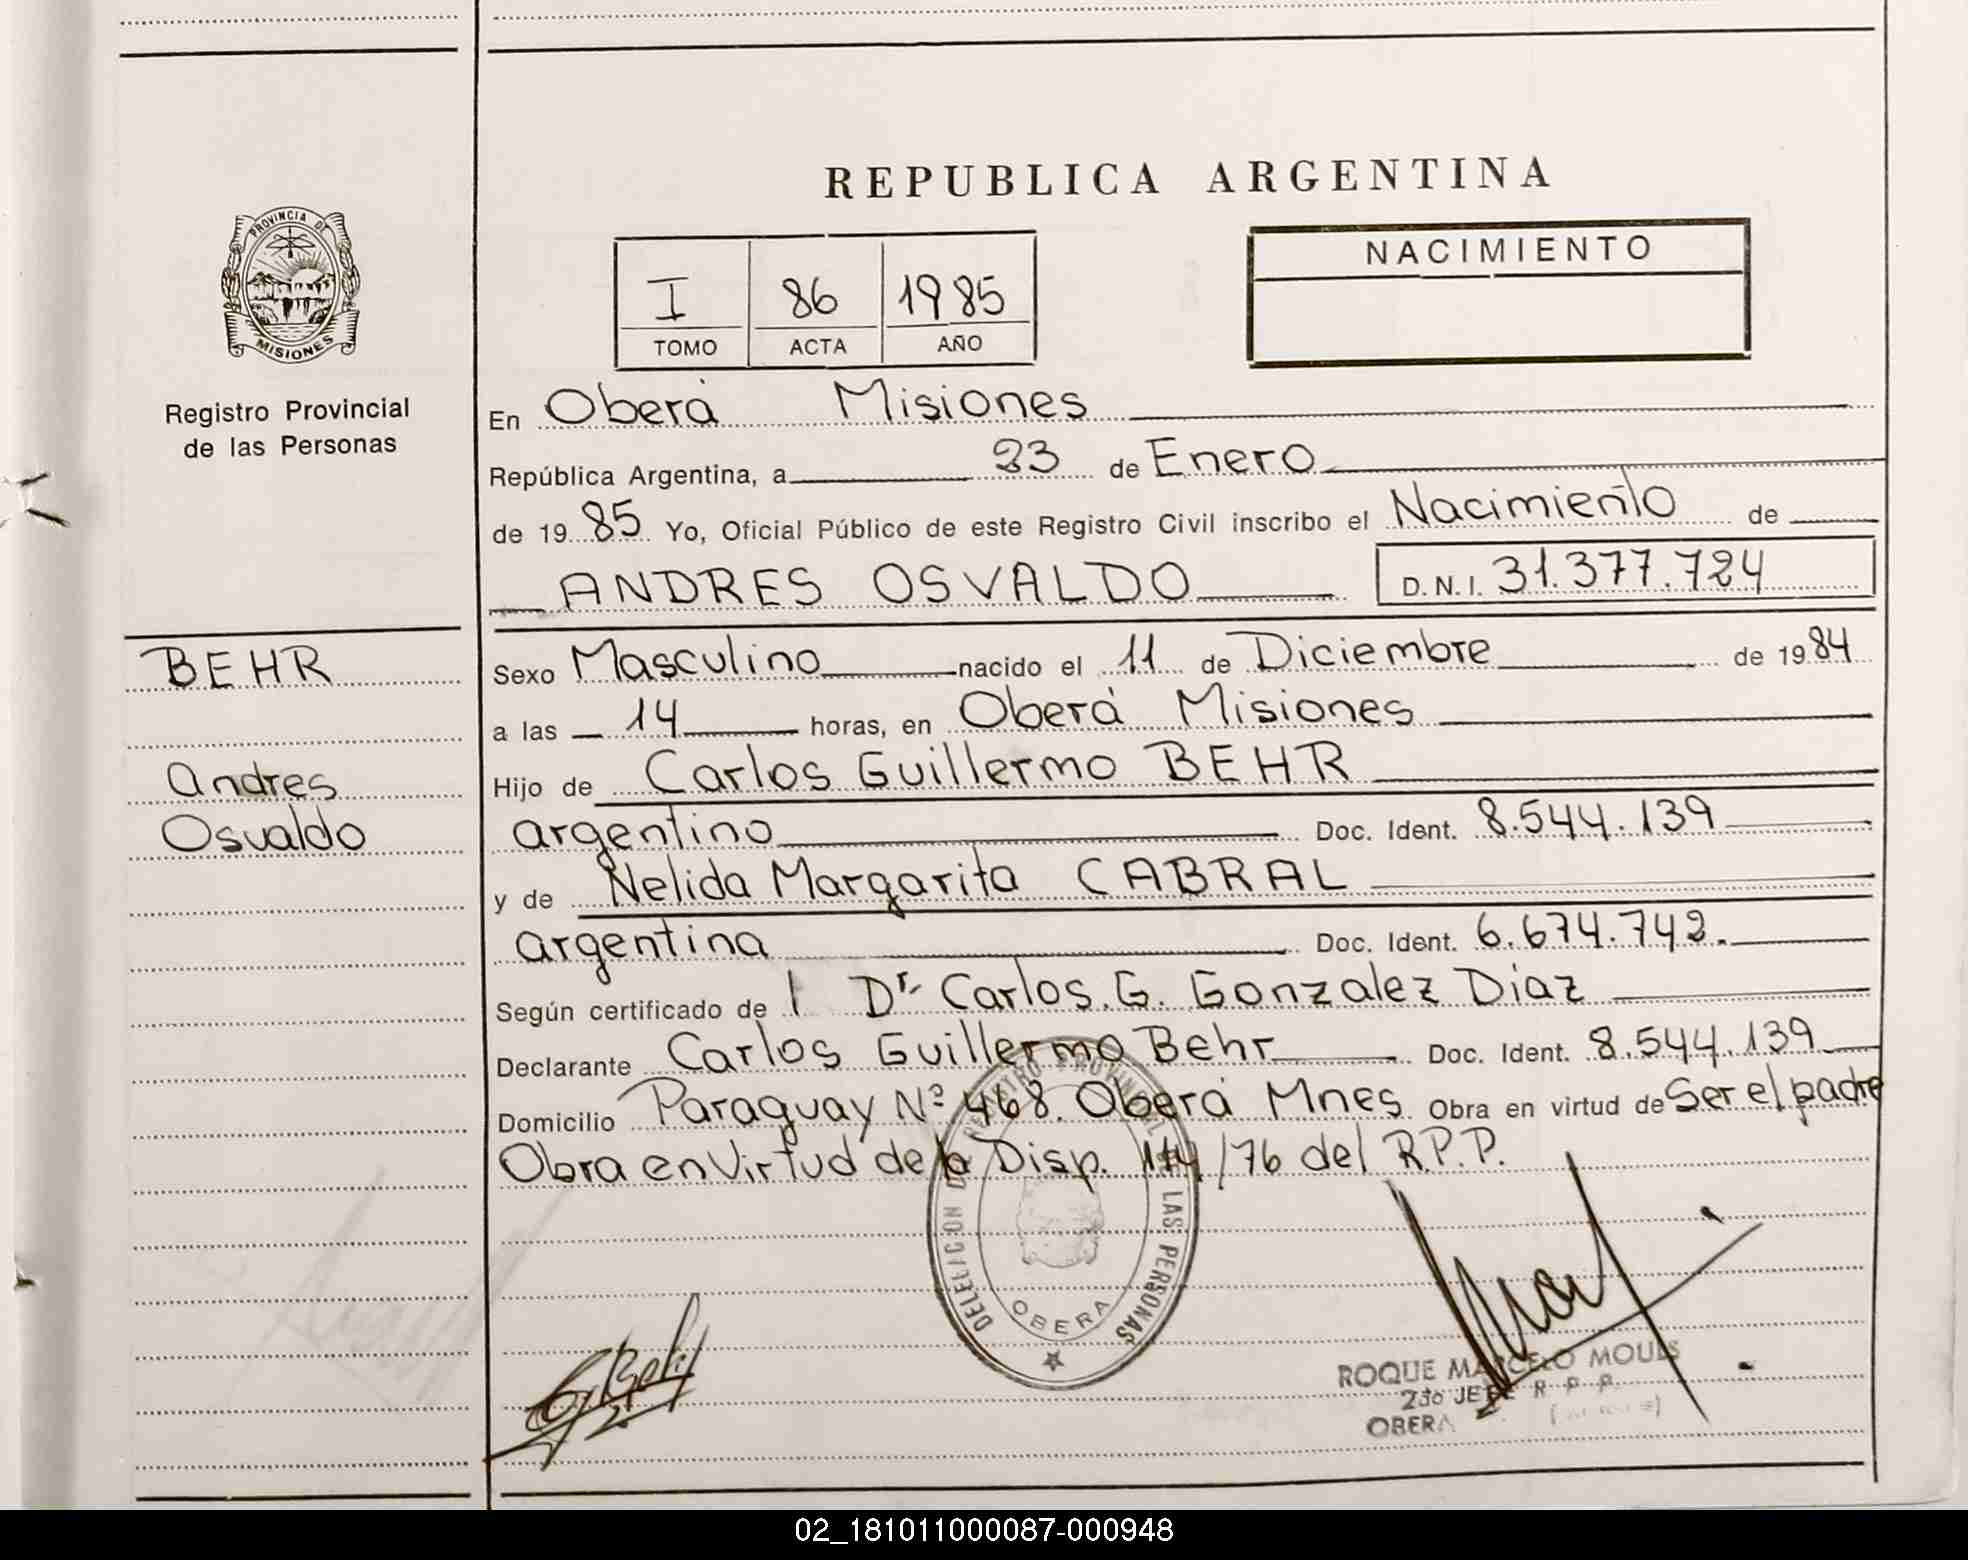 REPUBLICA ARGENTINA
PROVINCIA DE
MISIONES
Registro Provincial
de las Personas
I 86 1985
TOMO ACTA AÑO
NACIMIENTO
En Oberá Misiones
República Argentina, a 23 de Enero
de 1985 Yo, Oficial Público de este Registro Civil inscribo el Nacimiento de
ANDRES OSVALDO D.N.I. 31.377.724
BEHR
Andres
Osvaldo
Sexo Masculino nacido el 11 de Diciembre de 1984
a las 14 horas, en Oberá Misiones
Hijo de Carlos Guillermo BEHR
argentino Doc. Ident. 8.544.139
y de Nelida Margarita CABRAL
argentina Doc. Ident. 6.674.742.
Según certificado de l Dr. Carlos. G. Gonzalez Diaz
Declarante Carlos Guillermo Behr Doc. Ident. 8.544.139
Domicilio Paraguay Nº 468. Oberá Mnes. Obra en virtud de Ser el padre
Obra en Virtud de la Disp. /76 del R.P.P.
DELEGACION DEL REGISTRO PROVINCIAL DE LAS PERSONAS
OBERA
ROQUE MARCELO MOULS
2do JEFE R P P
OBERA
02_181011000087-000948